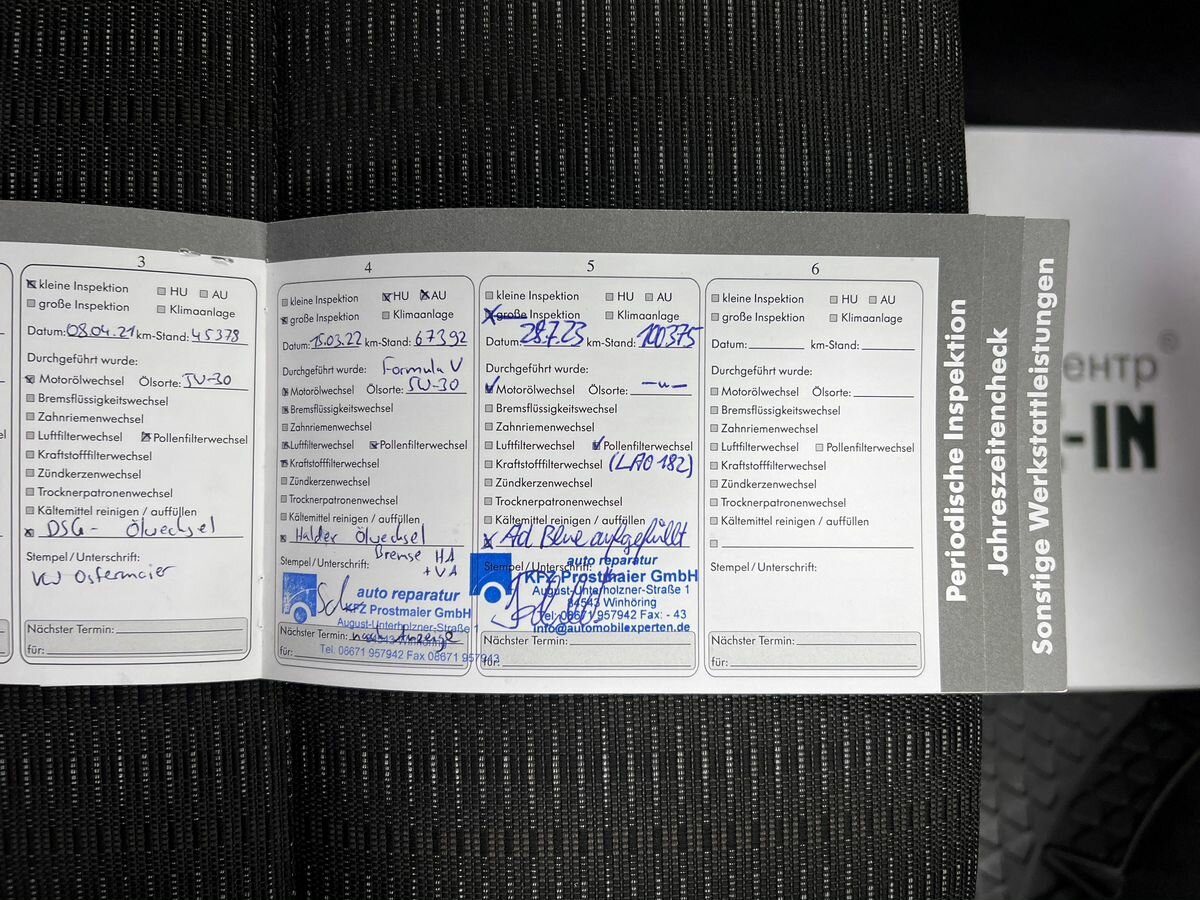 3
kleine Inspektion HU AU
große Inspektion Klimaanlage
Datum: 08.04.21 km-Stand: 45378
Durchgeführt wurde:
Motorölwechsel Ölsorte: 5W-30
Bremsflüssigkeitswechsel
Zahnriemenwechsel
Luftfilterwechsel Pollenfilterwechsel
Kraftstofffilterwechsel
Zündkerzenwechsel
Trocknerpatronenwechsel
Kältemittel reinigen / auffüllen
DSG- Ölwechsel
Stempel / Unterschrift:
VW Ostermaier
Nächster Termin:
für:
4
kleine Inspektion HU AU
große Inspektion Klimaanlage
Datum: 15.03.22 km-Stand: 67392
Durchgeführt wurde: Formula V
Motorölwechsel Ölsorte: 5W-30
Bremsflüssigkeitswechsel
Zahnriemenwechsel
Luftfilterwechsel Pollenfilterwechsel
Kraftstofffilterwechsel
Zündkerzenwechsel
Trocknerpatronenwechsel
Kältemittel reinigen / auffüllen
Haldex Ölwechsel
Bremse HA
Stempel / Unterschrift: + VA
auto reparatur
KFZ Prostmaier GmbH
August-Unterholzner-Straße 1
Nächster Termin: nach Anzeige
84543 Winhöring
für: Tel. 08671 957942 Fax 08671 957943
5
kleine Inspektion HU AU
große Inspektion Klimaanlage
Datum: 28.7.23 km-Stand: 100375
Durchgeführt wurde:
Motorölwechsel Ölsorte: -"-
Bremsflüssigkeitswechsel
Zahnriemenwechsel
Luftfilterwechsel Pollenfilterwechsel
Kraftstofffilterwechsel (LAO 182)
Zündkerzenwechsel
Trocknerpatronenwechsel
Kältemittel reinigen / auffüllen
Ad Blue aufgefüllt
Stempel / Unterschrift: auto reparatur
KFZ Prostmaier GmbH
August-Unterholzner-Straße 1
84543 Winhöring
Tel: 08671 957942 Fax: - 43
info@automobilexperten.de
Nächster Termin:
für:
6
kleine Inspektion HU AU
große Inspektion Klimaanlage
Datum: km-Stand:
Durchgeführt wurde:
Motorölwechsel Ölsorte:
Bremsflüssigkeitswechsel
Zahnriemenwechsel
Luftfilterwechsel Pollenfilterwechsel
Kraftstofffilterwechsel
Zündkerzenwechsel
Trocknerpatronenwechsel
Kältemittel reinigen / auffüllen
Stempel / Unterschrift:
Nächster Termin:
für:
Periodische Inspektion
Jahreszeitencheck
Sonstige Werkstattleistungen
ентр®
-IN